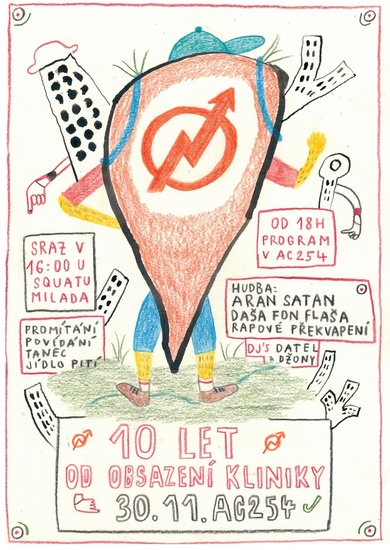 SRAZ V
16:00 U
SQUATU
MILADA
OD 18H
PROGRAM
V AC254
HUDBA:
ARAN SATAN
DAŠA FON FLAŠA
RAPOVÉ PŘEKVAPENÍ
DJ'S DATEL
z DŽONY
PROMÍTÁNÍ
POVÍDÁNÍ
TANEC
JÍDLO PITÍ
10 LET
OD OBSAZENÍ KLINIKY
30.11. AC254